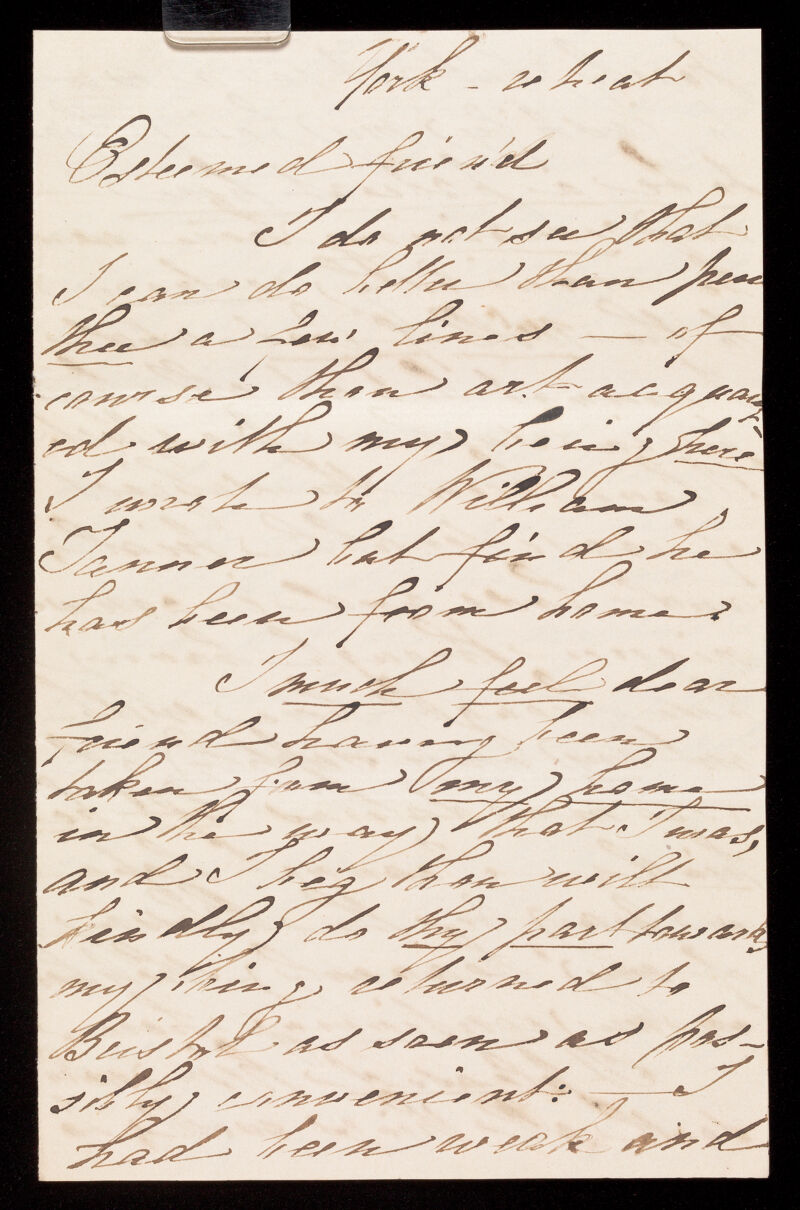 York - retreat
Esteemed friend
I do not see that
I can do better than pen
thee a few lines — of
course thou art acquaint=
ed with my being here
I wrote to William
Tanner but find he
has been from home.
I much feel dear
friend having been
taken from my home
in the way that I was,
and I beg thou wilt
kindly do thy part towards
my being returned to
Bristol as soon as pos-
sibly convenient: — I
had been weak and